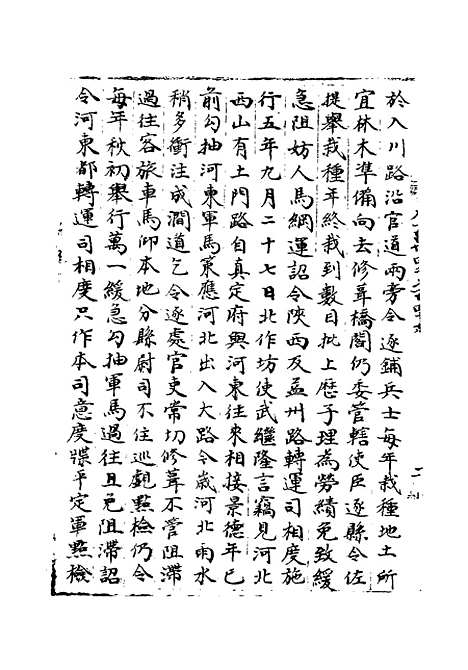 於入川路沿官道兩旁令逐鋪兵士每年栽種地土所
宜林木準備向去修葺橋閣仍委管轄使臣逐縣令佐
提舉栽種年終栽到數目批上歷子理為勞績免致緩
急阻妨人馬綱運詔令陝西及益州路轉運司相度施
行五年九月二十七日北作坊使武繼隆言竊見河北
西山有土門路自真定府與河東往來相接景德年已
前勾抽河東軍馬策應河北出入大路令歲河北雨水
稍多衝注成澗道乞令逐處官吏常切修葺不管阻滯
過往客旅車馬仰本地分縣尉司不住巡覷點檢仍令
每年秋初舉行萬一緩急勾抽軍馬過往且免阻滯詔
令河東都轉運司相度只作本司意度牒平定軍點檢